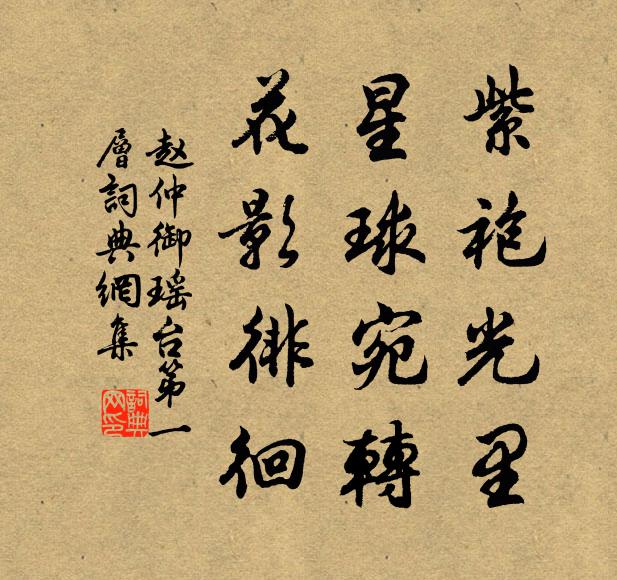 紫袍光里
星球宛轉
花影徘徊
赵仲御瑶台第一
層詞典網集
詞典
网印